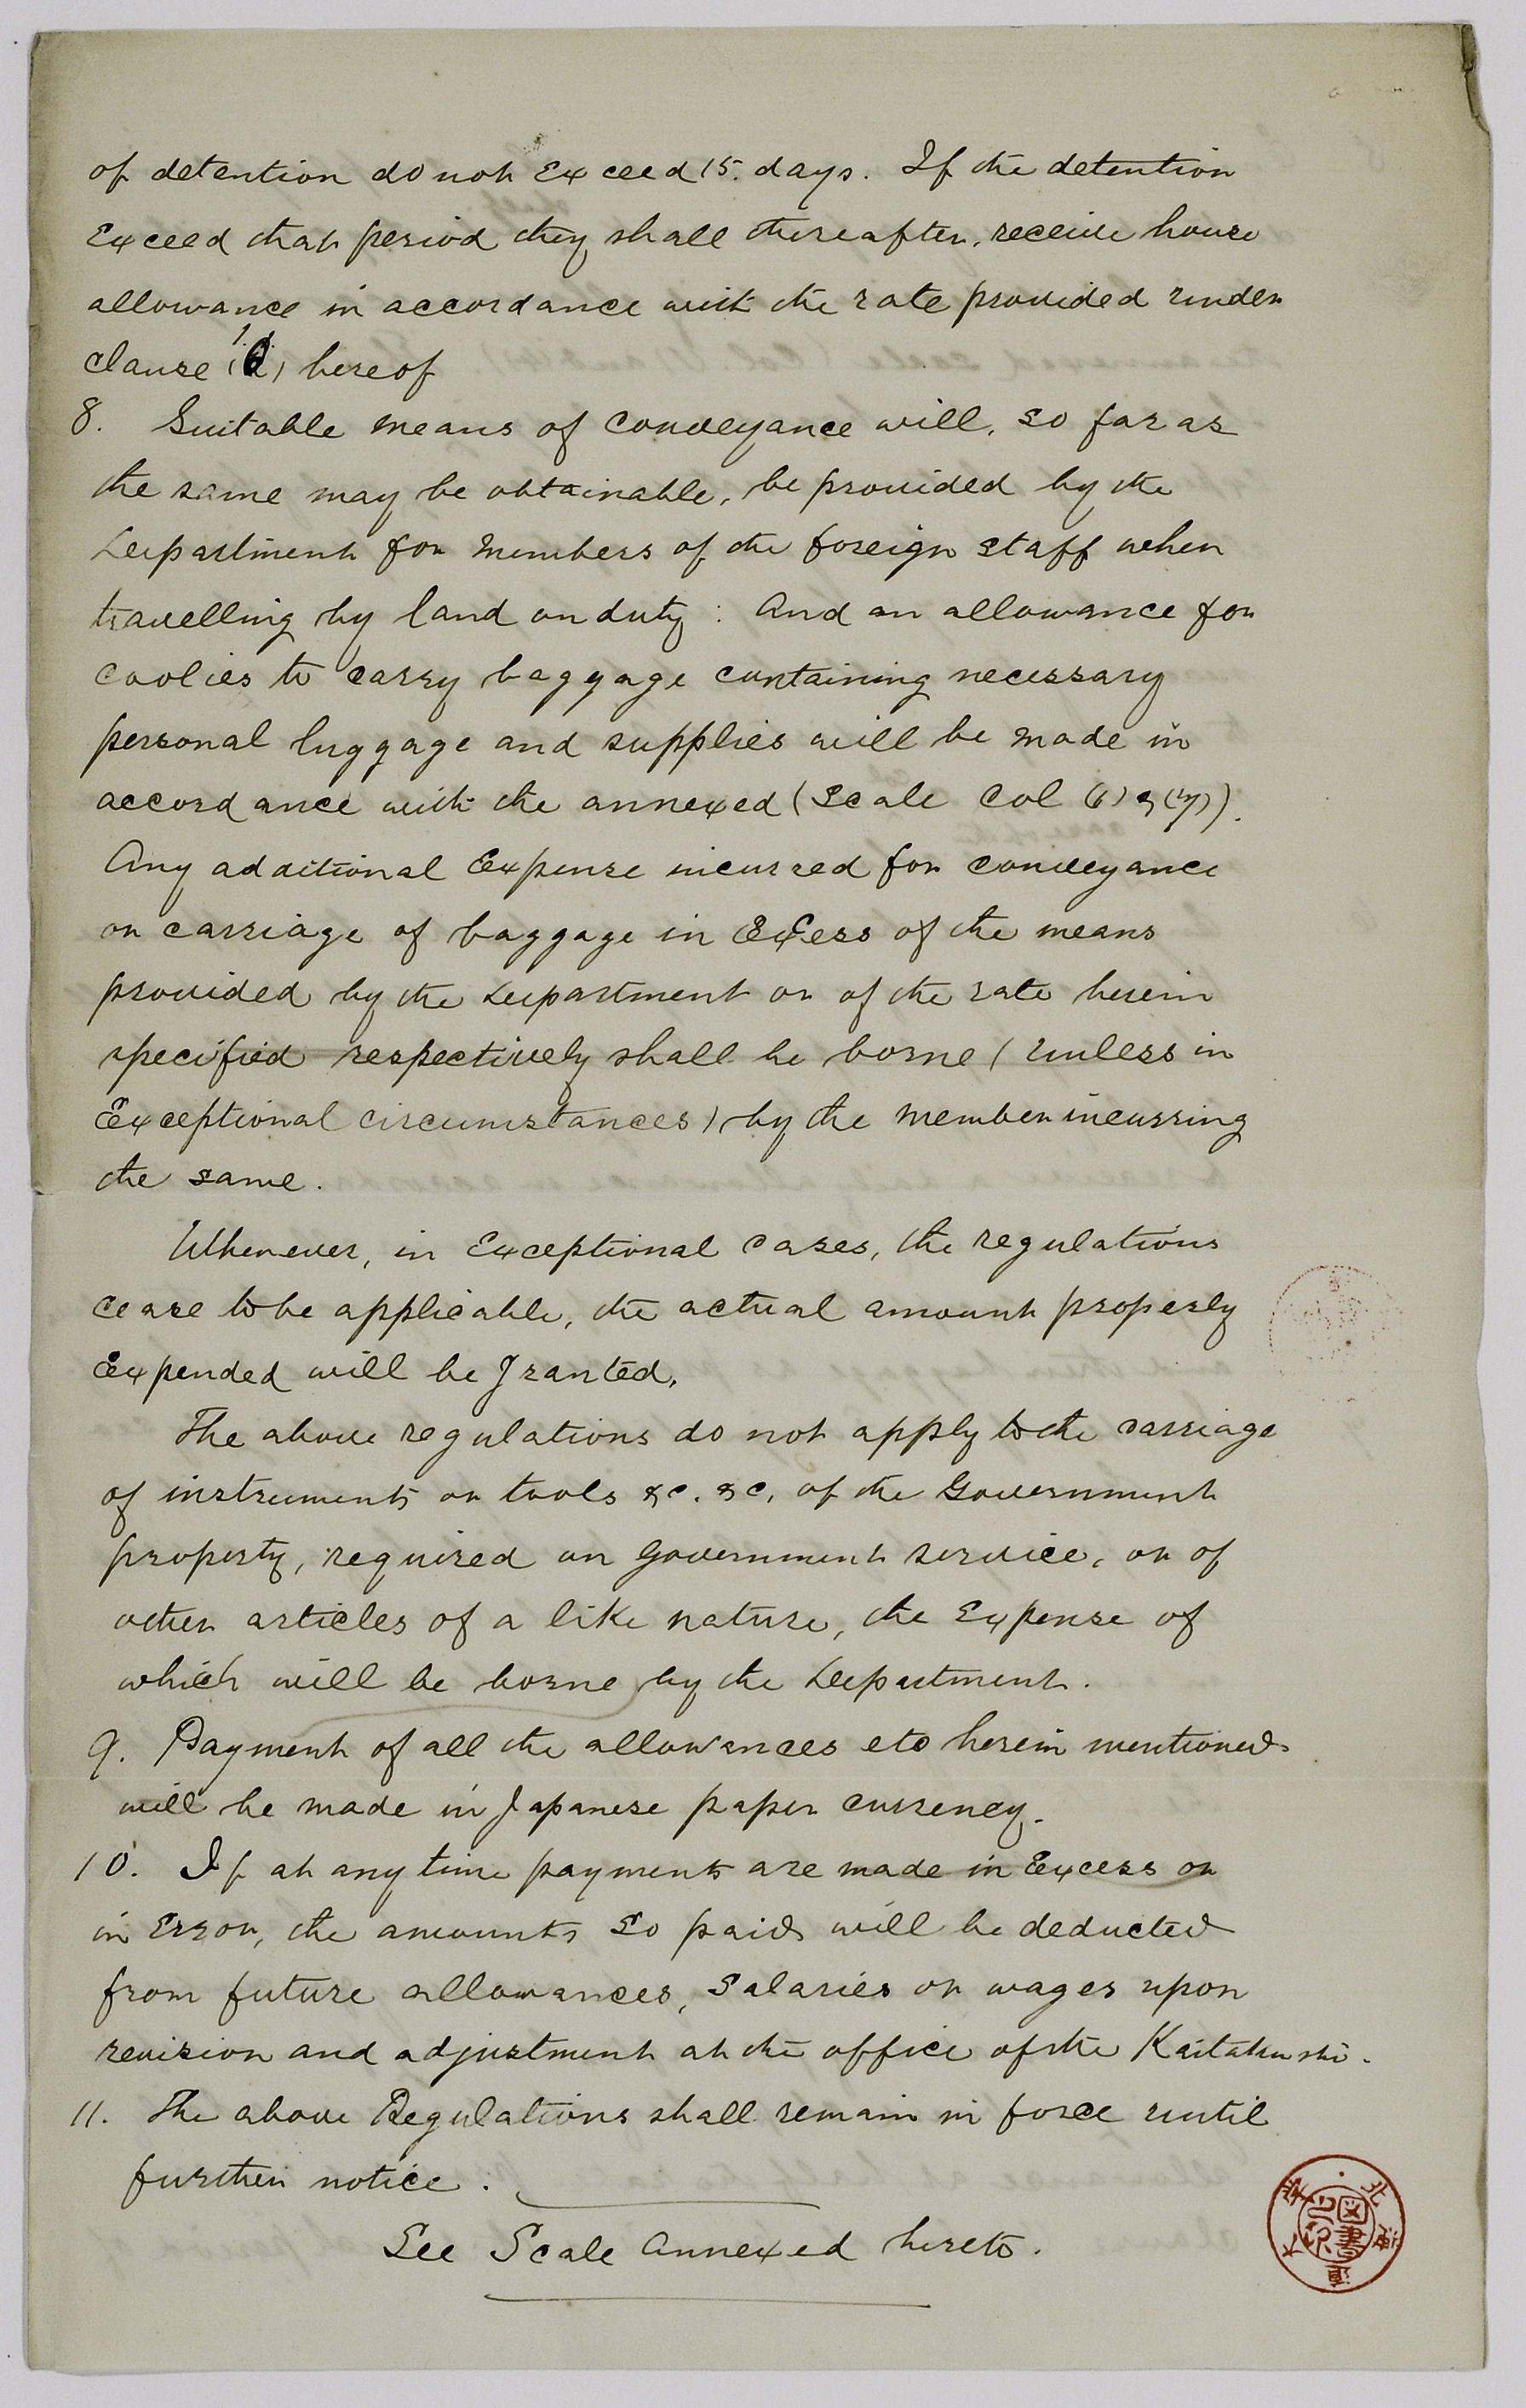 of detention do not Exceed 15. days. If the detention
Exceed that period they shall thereafter, receive house
allowance in accordance with the rate provided under
clause hereof
8. Suitable means of conveyance will, so far as
the same may be obtainable, be provided by the
Department for members of the foreign staff when
travelling by land on duty: And an allowance for
coolies to carry baggage containing necessary
personal luggage and supplies will be made in
accordance with the annexed (Scale Col (6) & (7)).
Any additional Expense incurred for conveyance
or carriage of baggage in Excess of the means
provided by the Department or of the rate herein
specified respectively shall be borne (unless in
Exceptional circumstances) by the member incurring
the same.
Whenever, in Exceptional cases, the regulations
cease to be applicable, the actual amount properly
Expended will be granted,
The above regulations do not apply to the carriage
of instruments or tools &c. &c, of the Government
property, required on Government service, or of
other articles of a like nature, the Expense of
which will be borne by the Department.
9. Payment of all the allowances etc herein mentioned
will be made in Japanese paper currency.
10. If at any time payments are made in Excess or
in Error, the amounts So paid will be deducted
from future allowances, Salaries or wages upon
revision and adjustment at the office of the Kaitakushi.
11. The above Regulations shall remain in force until
further notice.
See Scale annexed hereto.
北海道大学
図書之印